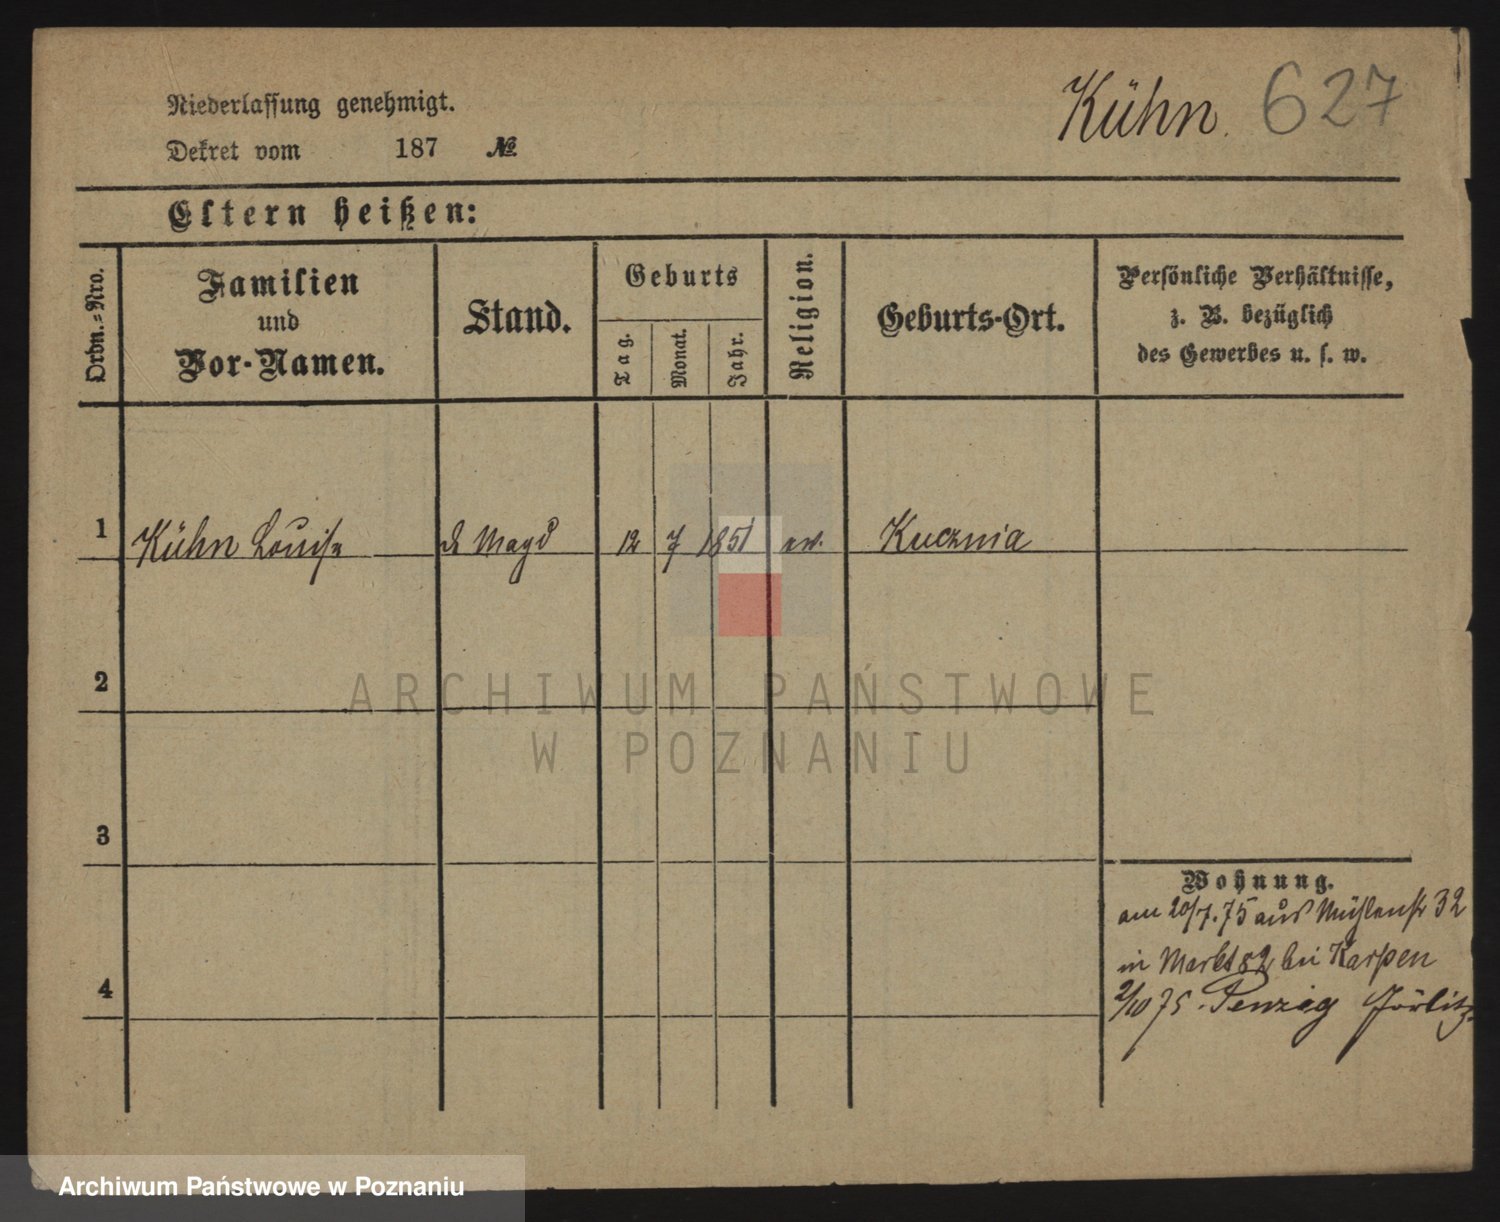 Niederlassung genehmigt.
Dekret vom 187 №
Kühn. 627
Eltern heißen:
Ordn.-Nro.
Familien
und
Vor-Namen.
Stand.
Geburts
Tag.
Monat.
Jahr.
Religion.
Geburts-Ort.
Persönliche Verhältnisse,
z. B. bezüglich
des Gewerbes u. s. w.
1 Kühn Louise d Magd 12 7 1851 ev. Kucznia
2
3
4
Wohnung.
am 20/7.75 aus Mühlenstr 32
in Markt 82 bei Karpen
2/10 75. Penzig Görlitz
ARCHIWUM PAŃSTWOWE
W POZNANIU
Archiwum Państwowe w Poznaniu